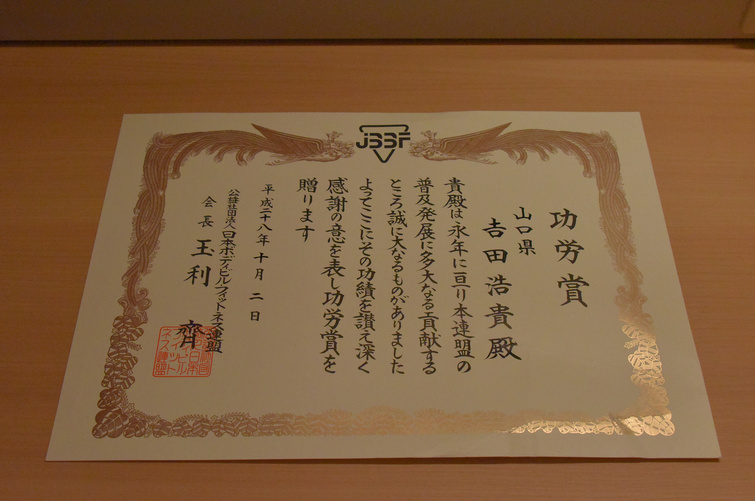 JBBF
功労賞
山口県
吉田浩貴殿
貴殿は永年に亘り本連盟の
普及発展に多大なる貢献する
ところ誠に大なるものがありました
よってここにその功績を讃え深く
感謝の意を表し功労賞を
贈ります
平成二十八年十月二日
公益社団法人日本ボディビル・フィットネス連盟
会長 玉利 齊